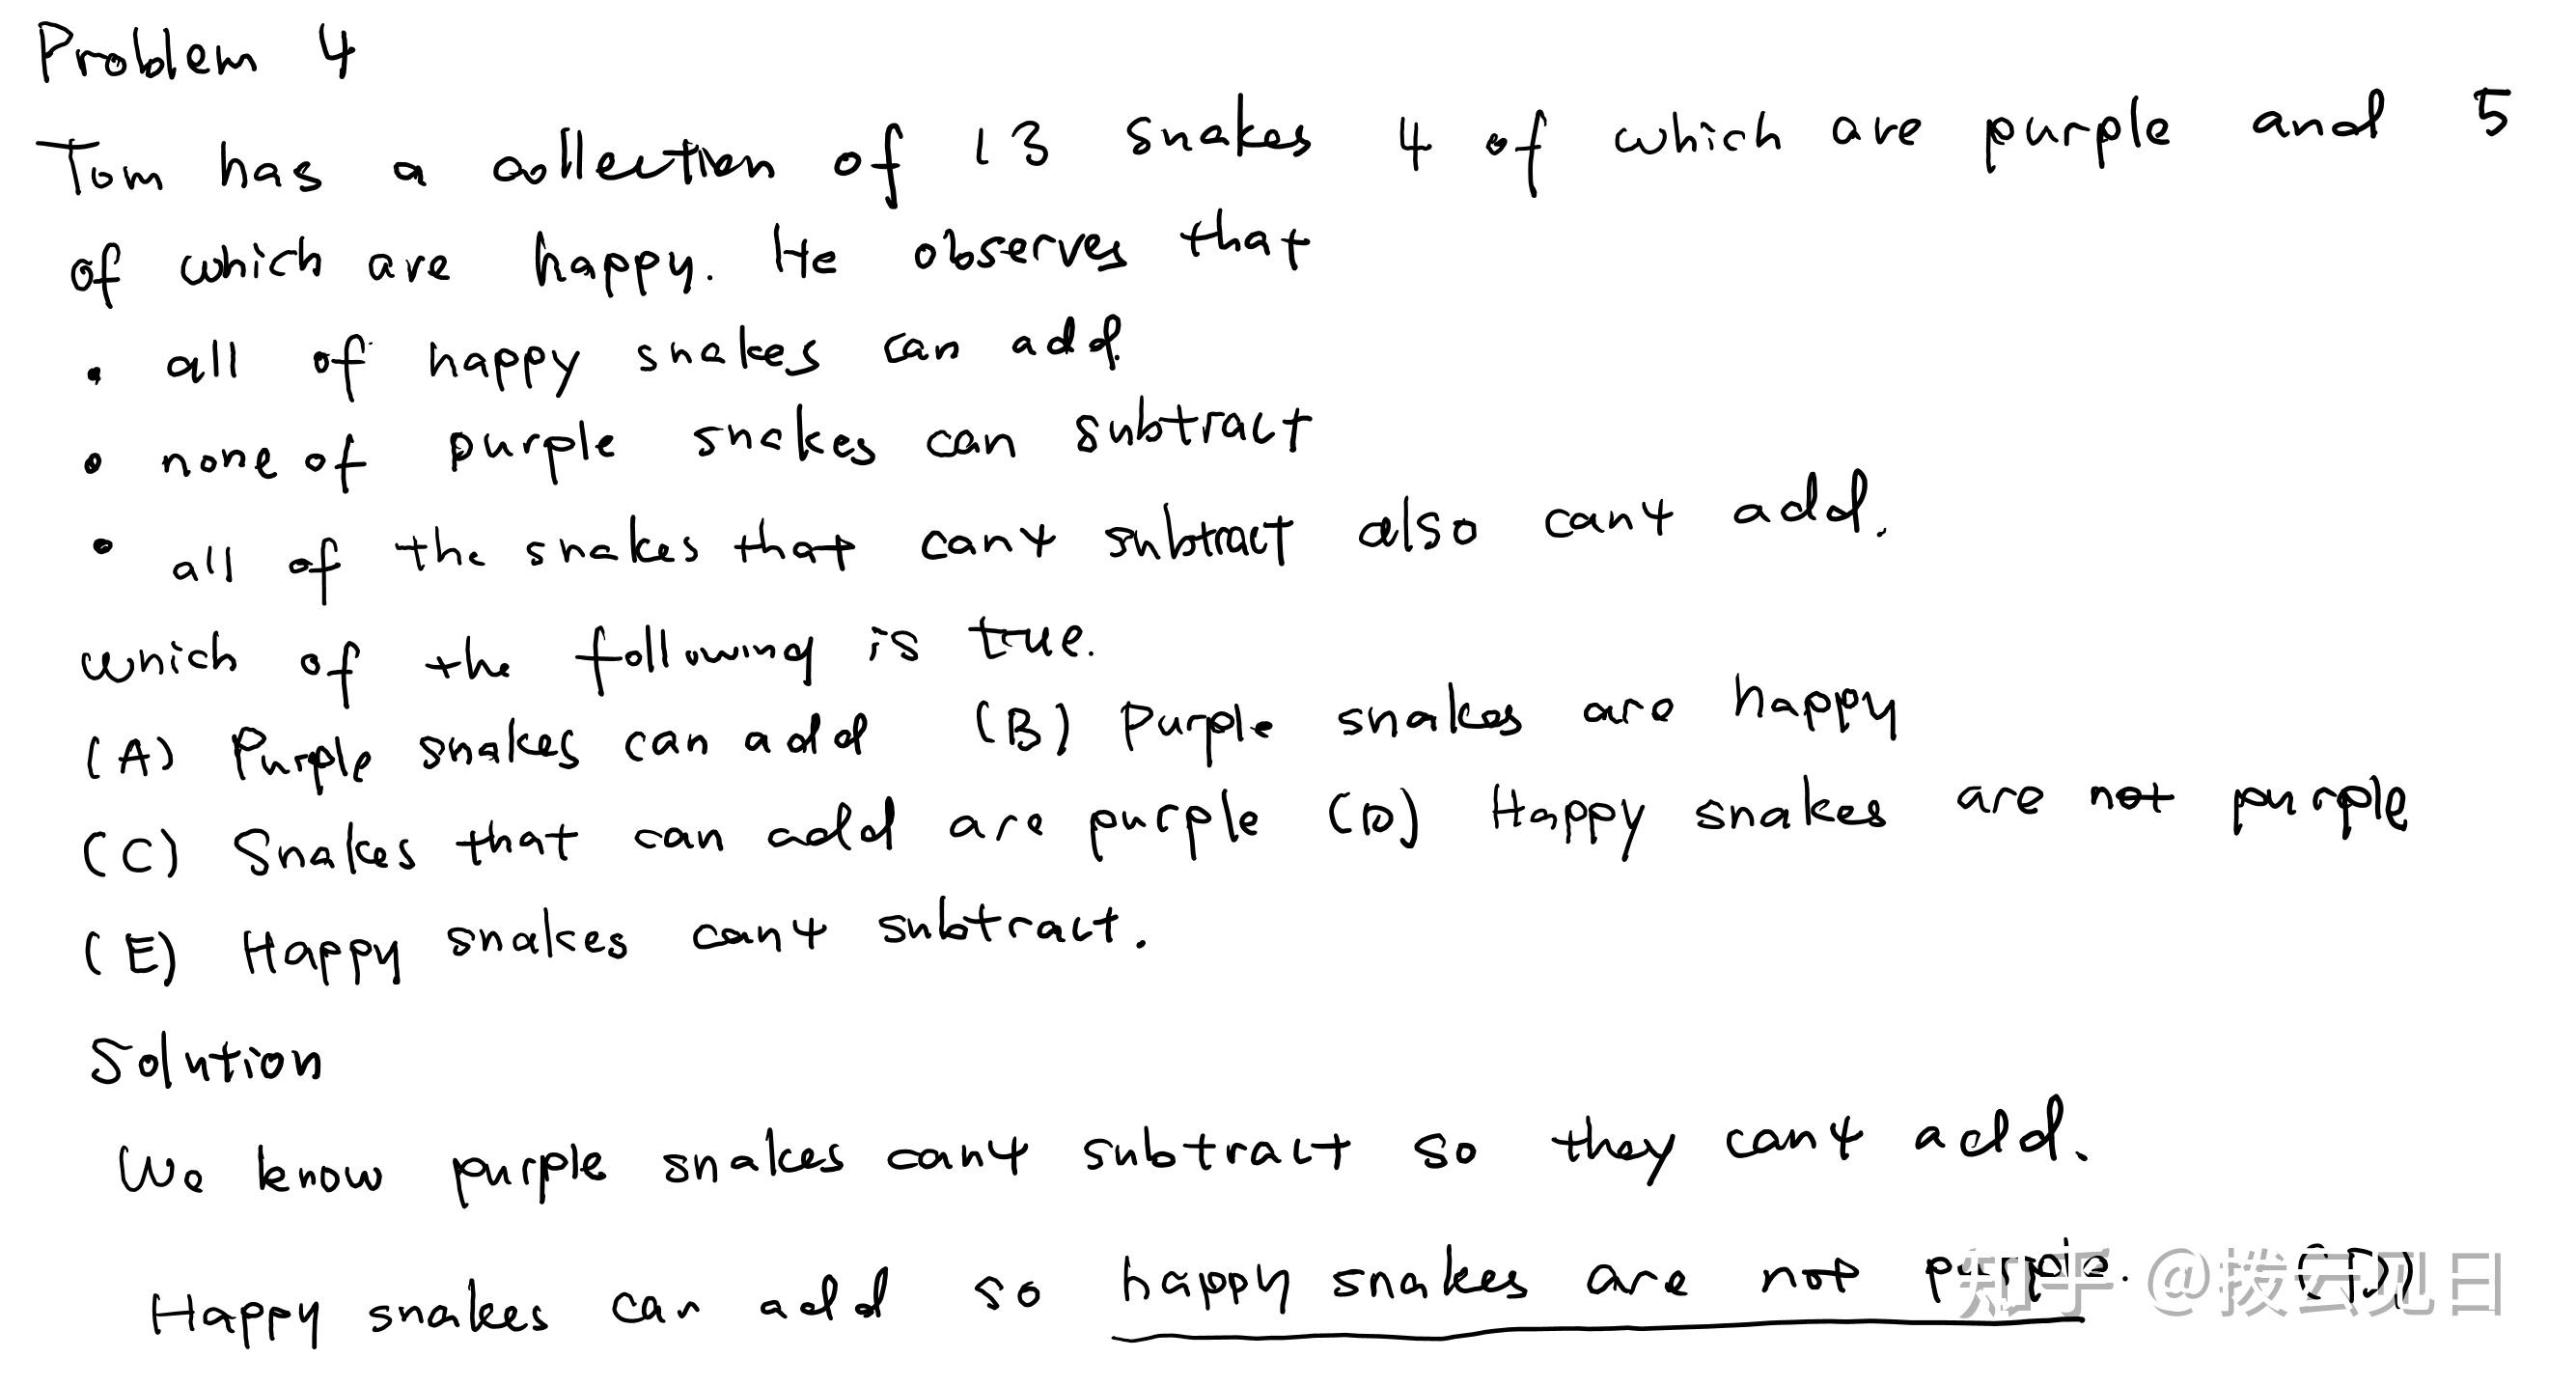 Problem 4
Tom has a collection of 13 snakes 4 of which are purple and 5
of which are happy. He observes that
• all of happy snakes can add
• none of purple snakes can subtract
• all of the snakes that can't subtract also can't add.
which of the following is true.
(A) Purple snakes can add (B) Purple snakes are happy
(C) Snakes that can add are purple (D) Happy snakes are not purple
(E) Happy snakes can't subtract.
Solution
We know purple snakes can't subtract so they can't add.
Happy snakes can add so happy snakes are not purple. (D)
知乎 @拨云见日